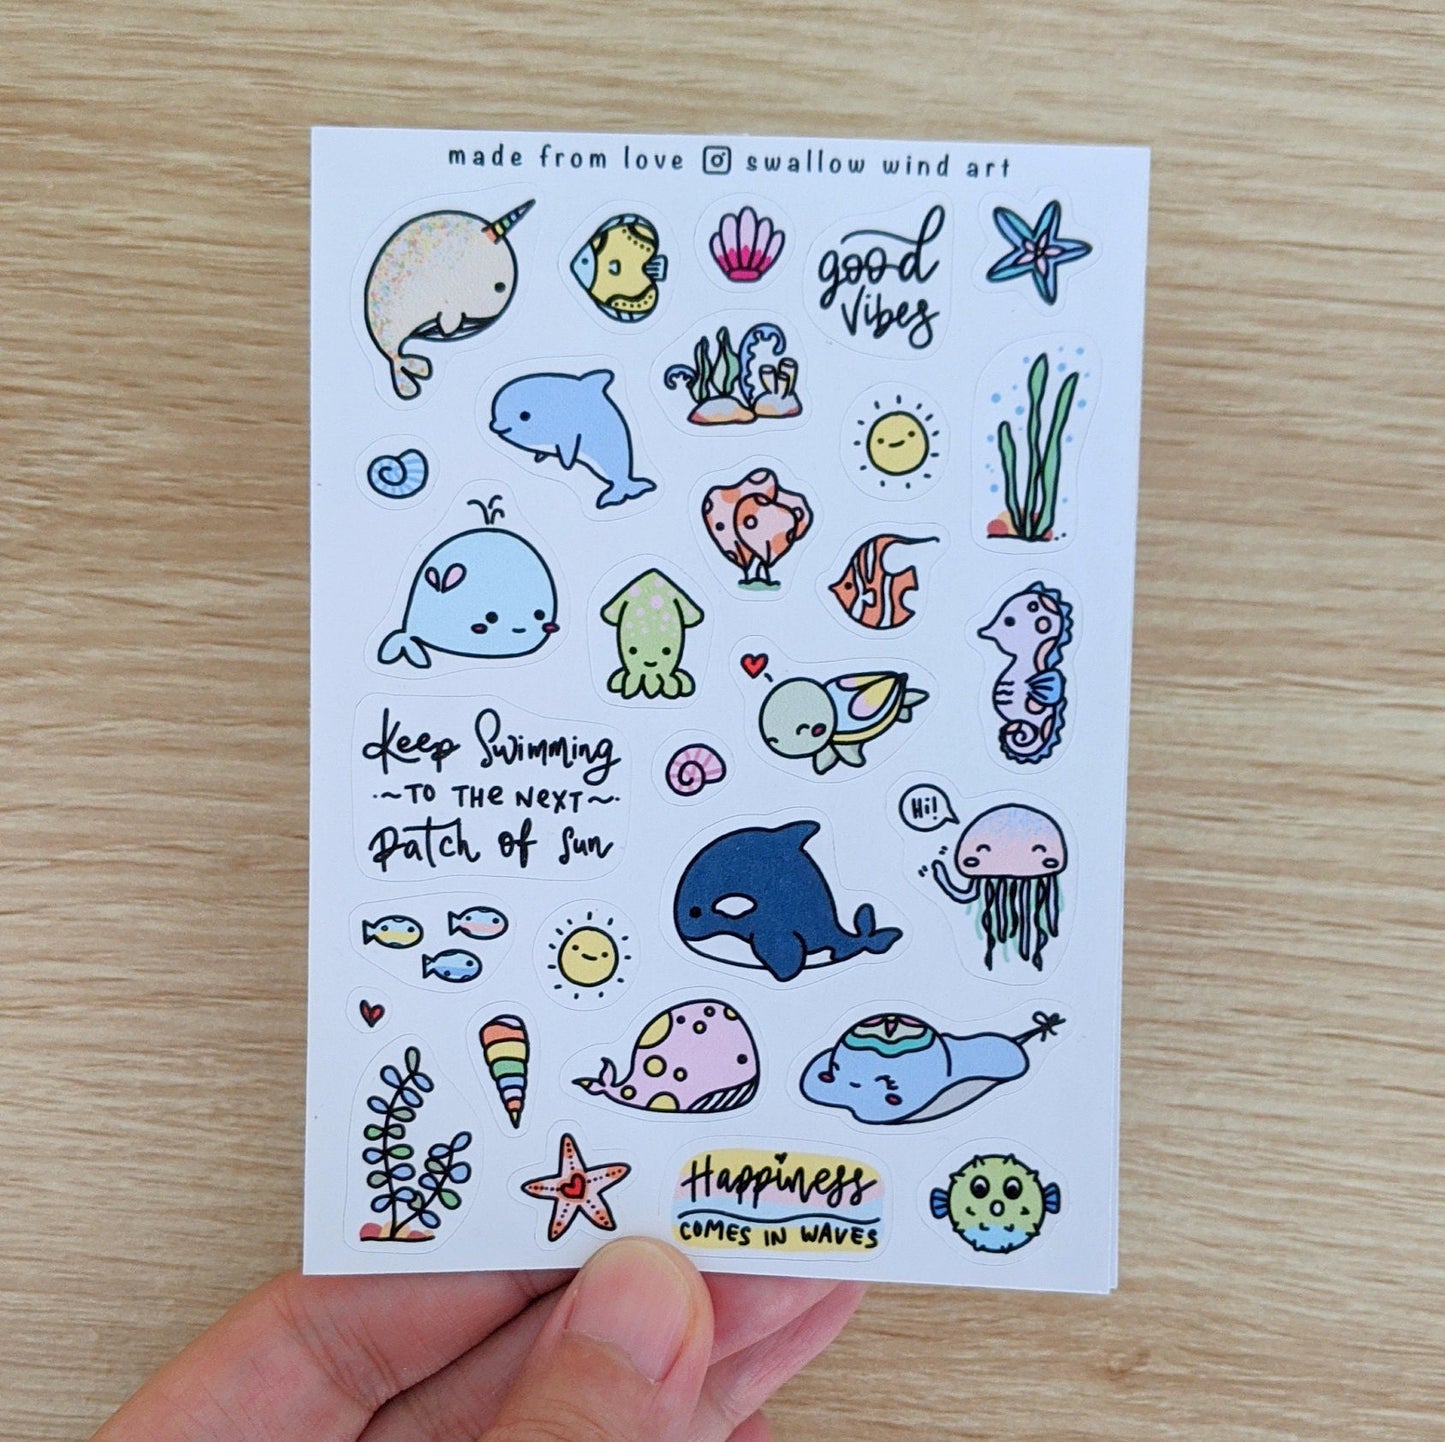 made from love swallow wind art
good
vibes
Keep Swimming
~TO THE NEXT~
Patch of Sun
Hi!
Happiness
COMES IN WAVES